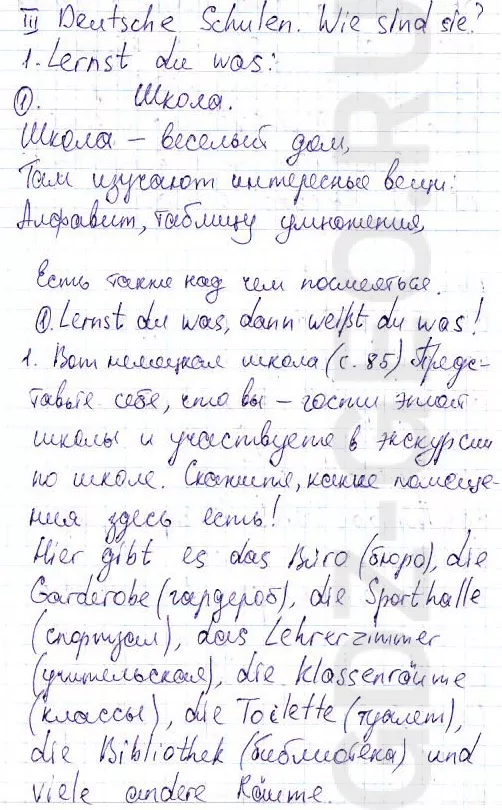 III Deutsche Schulen. Wie sind sie?
1. Lernst du was:
①. Школа.
Школа – веселый дом,
Там изучают интересные вещи:
Алфавит, таблицу умножения,
Есть также над чем посмеяться.
①. Lernst du was, dann weißt du was!
1. Вот немецкая школа (с. 85) Предс-
тавьте себе, что вы – гости этой
школы и участвуете в экскурсии
по школе. Скажите, какие помеще-
ния здесь есть!
Hier gibt es das Büro (бюро), die
Garderobe (гардероб), die Sporthalle
(спортзал), das Lehrerzimmer
(учительская), die Klassenräume
(классы), die Toilette (туалет),
die Bibliothek (библиотека) und
viele andere Räume.
GDZ-GEO.RU